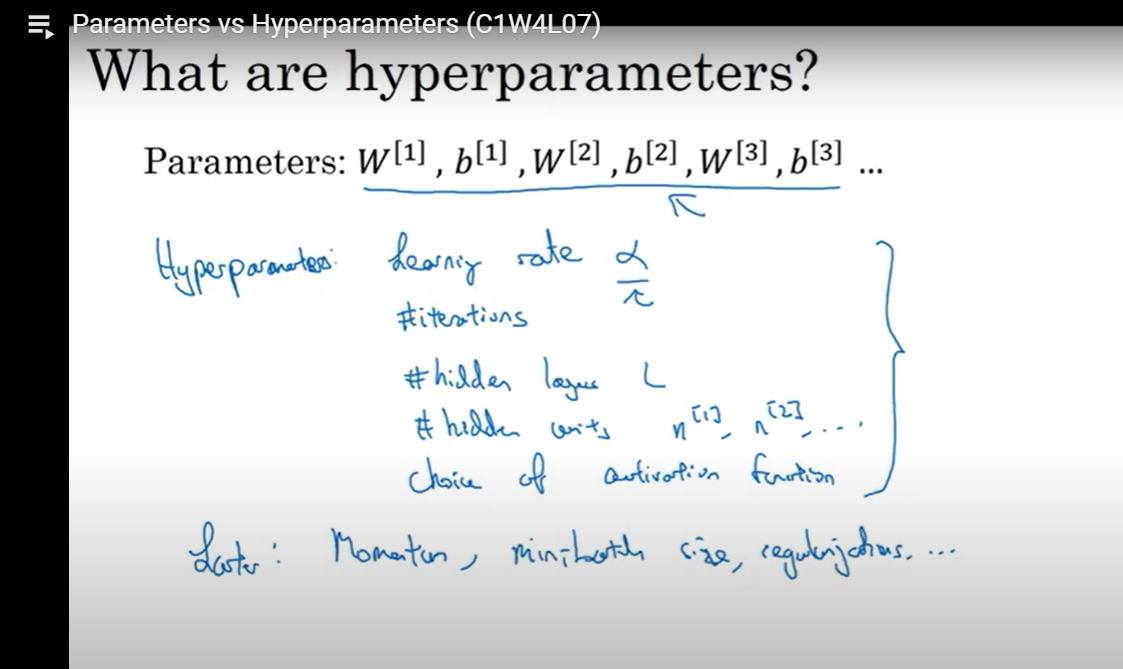 Parameters vs Hyperparameters (C1W4L07)
What are hyperparameters?
Parameters: W[1] , b[1] , W[2] , b[2] , W[3] , b[3] ...
Hyperparameters: Learning rate α
#iterations
#hidden layers L
#hidden units n[1], n[2], ....
Choice of activation function
Later: Momentum, mini-batch size, regularizations, ...